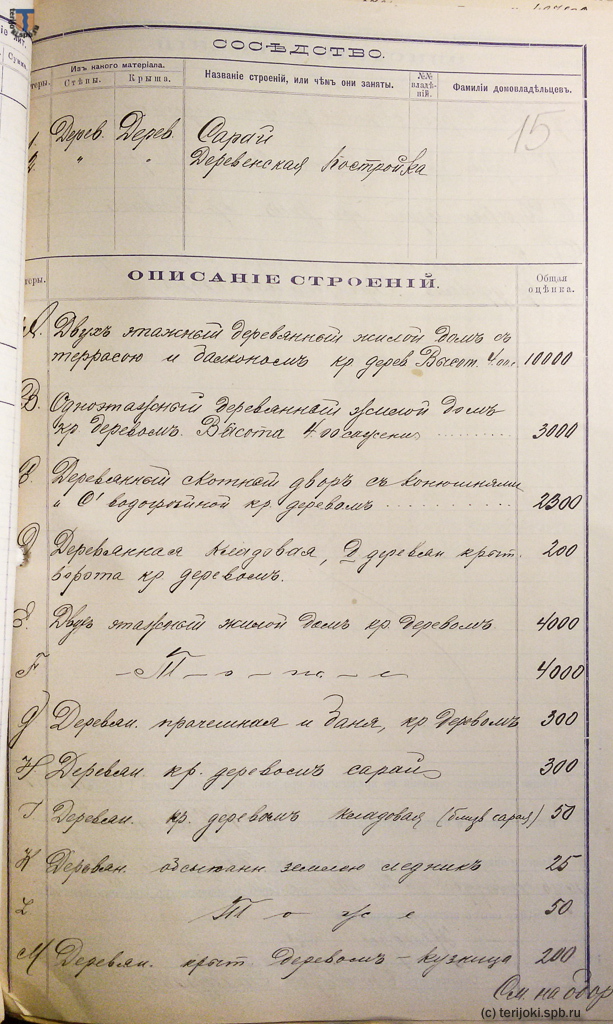 СОСѢДСТВО.
Изъ какого матеріала.
Стѣны.
Крыша.
Названіе строеній, или чѣмъ они заняты.
№№ владѣній.
Фамиліи домовладѣльцевъ.
15
1. Дерев. Дерев. Сарай
2. " " Деревенская Постройка
ОПИСАНІЕ СТРОЕНІЙ.
Общая оцѣнка.
А. Двухъ этажный деревянный жилой домъ съ
террасою и балкономъ кр дерев Высот. 4.00 10000
В. Одноэтажный деревянный жилой домъ
кр деревомъ. Высота 4.00 сажени 3000
Деревянный скотный дворъ съ конюшнями
и водогрейной кр. деревомъ 2300
Деревянная кладовая, D деревян крыт. 200
ворота кр деревомъ.
Двухъ этажный жилой домъ кр. деревомъ 4000
F – Т – о – ж – е 4000
Деревян. прачешная и баня, кр деревомъ 300
H Деревян кр. деревомъ сарай 300
I Деревян. кр. деревомъ кладовая (близъ сарая) 50
K Деревян. обсыпанн землею ледникъ 25
L Т о ж е 50
M Деревян. крыт деревомъ – кузница 200
См. на обор
(c) terijoki.spb.ru